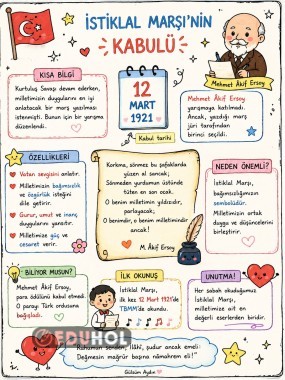 İSTİKLAL MARŞI'NIN
KABULÜ
KISA BİLGİ
Kurtuluş Savaşı devam ederken,
milletimizin duygularını en iyi
anlatacak bir marş yazılması
istenmişti. Bunun için bir yarışma
düzenlendi.
12
MART
1921
Kabul tarihi
Mehmet Âkif Ersoy
Mehmet Âkif Ersoy
yarışmaya katılmadı.
Ancak, yazdığı marş
jüri tarafından
birinci seçildi.
ÖZELLİKLERİ
Vatan sevgisini anlatır.
Milletimizin bağımsızlık
ve özgürlük isteğini
dile getirir.
Gurur, umut ve inanç
duygularını yansıtır.
Milletimize güç ve
cesaret verir.
Korkma, sönmez bu şafaklarda
yüzen al sancak;
Sönmeden yurdumun üstünde
tüten en son ocak.
O benim milletimin yıldızıdır,
parlayacak;
O benimdir, o benim milletimindir
ancak!
M. Âkif Ersoy
NEDEN ÖNEMLİ?
İstiklal Marşı,
bağımsızlığımızın
sembolüdür.
Milletimizin ortak
duygu ve düşüncelerini
birleştirir.
BİLİYOR MUSUN?
Mehmet Âkif Ersoy,
para ödülünü kabul etmedi.
O parayı Türk ordusuna
bağışladı.
İLK OKUNUŞ
İstiklal Marşı,
ilk kez 12 Mart 1921'de
TBMM'de okundu.
UNUTMA!
Her sabah okuduğumuz
İstiklal Marşı,
milletimize ait en
değerli eserlerden biridir.
EDUHOL
"Ruhumun senden, İlâhî, şudur ancak emeli:
Değmesin mağrur başına nâmahrem eli!"
Gülsüm Aydın